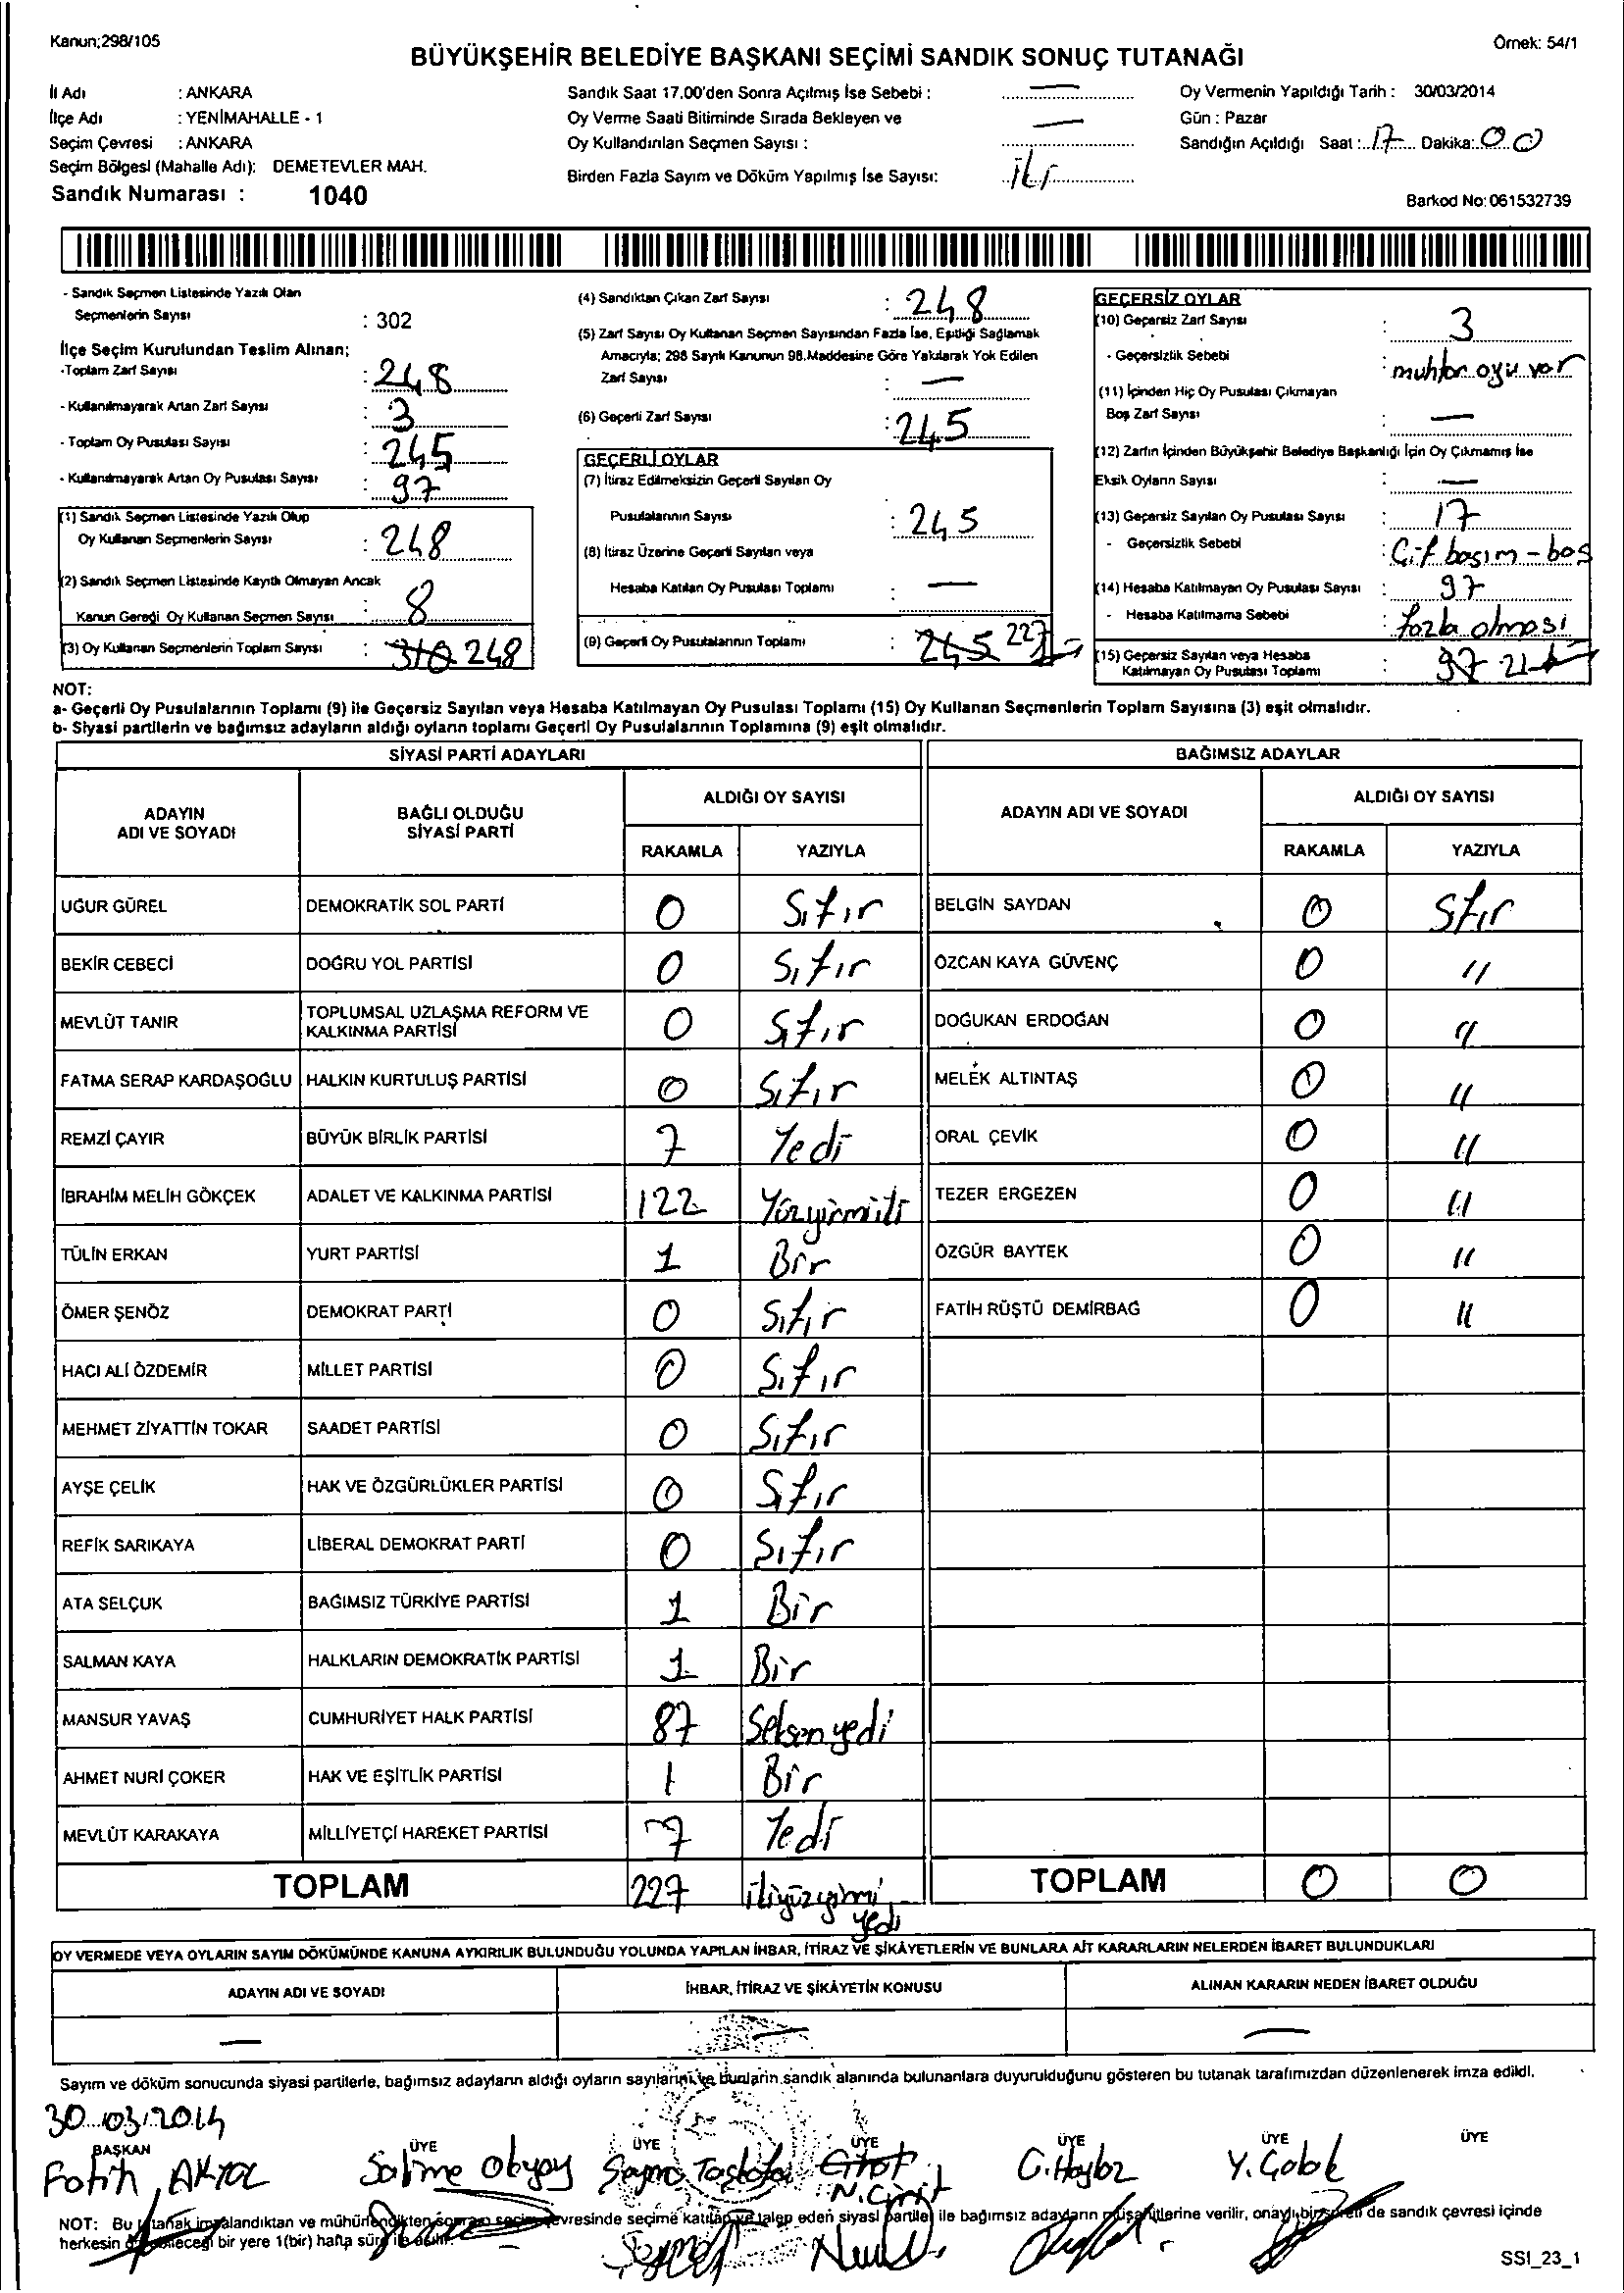 Kanun;298/105
Örnek: 54/1
BÜYÜKŞEHİR BELEDİYE BAŞKANI SEÇİMİ SANDIK SONUÇ TUTANAĞI
İl Adı : ANKARA
İlçe Adı : YENİMAHALLE - 1
Seçim Çevresi : ANKARA
Seçim Bölgesi (Mahalle Adı); DEMETEVLER MAH.
Sandık Numarası : 1040
Sandık Saat 17.00'den Sonra Açılmış İse Sebebi : —
Oy Verme Saati Bitiminde Sırada Bekleyen ve
Oy Kullandırılan Seçmen Sayısı : —
Birden Fazla Sayım ve Döküm Yapılmış İse Sayısı:
Oy Vermenin Yapıldığı Tarih : 30/03/2014
Gün : Pazar
Sandığın Açıldığı Saat : 17 Dakika: 00
Barkod No: 061532739
- Sandık Seçmen Listesinde Yazılı Olan
Seçmenlerin Sayısı : 302
İlçe Seçim Kurulundan Teslim Alınan;
-Toplam Zarf Sayısı : 248
- Kullanılmayarak Artan Zarf Sayısı : 3
- Toplam Oy Pusulası Sayısı : 245
- Kullanılmayarak Artan Oy Pusulası Sayısı : 97
(1) Sandık Seçmen Listesinde Yazılı Olup
Oy Kullanan Seçmenlerin Sayısı : 248
(2) Sandık Seçmen Listesinde Kayıtlı Olmayan Ancak
Kanun Gereği Oy Kullanan Seçmen Sayısı : 8
(3) Oy Kullanan Seçmenlerin Toplam Sayısı : 248
(4) Sandıktan Çıkan Zarf Sayısı : 248
(5) Zarf Sayısı Oy Kullanan Seçmen Sayısından Fazla İse, Eşitliği Sağlamak
Amacıyla; 298 Sayılı Kanunun 98.Maddesine Göre Yakılarak Yok Edilen
Zarf Sayısı : —
(6) Geçerli Zarf Sayısı : 245
GEÇERLİ OYLAR
(7) İtiraz Edilmeksizin Geçerli Sayılan Oy
Pusulalarının Sayısı : 245
(8) İtiraz Üzerine Geçerli Sayılan veya
Hesaba Katılan Oy Pusulası Toplamı : —
(9) Geçerli Oy Pusulalarının Toplamı : 245 227
GEÇERSİZ OYLAR
(10) Geçersiz Zarf Sayısı : 3
- Geçersizlik Sebebi : muhtar oyu var
(11) İçinden Hiç Oy Pusulası Çıkmayan
Boş Zarf Sayısı : —
(12) Zarfın İçinden Büyükşehir Belediye Başkanlığı İçin Oy Çıkmamış İse
Eksik Oyların Sayısı : —
(13) Geçersiz Sayılan Oy Pusulası Sayısı : 17
- Geçersizlik Sebebi : Çift basım - boş
(14) Hesaba Katılmayan Oy Pusulası Sayısı : 97
- Hesaba Katılmama Sebebi : fazla olması
(15) Geçersiz Sayılan veya Hesaba
Katılmayan Oy Pusulası Toplamı : 97 21
NOT:
a- Geçerli Oy Pusulalarının Toplamı (9) ile Geçersiz Sayılan veya Hesaba Katılmayan Oy Pusulası Toplamı (15) Oy Kullanan Seçmenlerin Toplam Sayısına (3) eşit olmalıdır.
b- Siyasi partilerin ve bağımsız adayların aldığı oyların toplamı Geçerli Oy Pusulalarının Toplamına (9) eşit olmalıdır.
SİYASİ PARTİ ADAYLARI
BAĞIMSIZ ADAYLAR
ADAYIN ADI VE SOYADI
BAĞLI OLDUĞU SİYASİ PARTİ
ALDIĞI OY SAYISI
RAKAMLA YAZIYLA
ADAYIN ADI VE SOYADI
ALDIĞI OY SAYISI
RAKAMLA YAZIYLA
UĞUR GÜREL DEMOKRATİK SOL PARTİ 0 Sıfır BELGİN SAYDAN 0 Sıfır
BEKİR CEBECİ DOĞRU YOL PARTİSİ 0 Sıfır ÖZCAN KAYA GÜVENÇ 0 "
MEVLÜT TANIR TOPLUMSAL UZLAŞMA REFORM VE KALKINMA PARTİSİ 0 Sıfır DOĞUKAN ERDOĞAN 0 "
FATMA SERAP KARDAŞOĞLU HALKIN KURTULUŞ PARTİSİ 0 Sıfır MELEK ALTINTAŞ 0 "
REMZİ ÇAYIR BÜYÜK BİRLİK PARTİSİ 7 Yedi ORAL ÇEVİK 0 "
İBRAHİM MELİH GÖKÇEK ADALET VE KALKINMA PARTİSİ 122 Yüzyirmiiki TEZER ERGEZEN 0 "
TÜLİN ERKAN YURT PARTİSİ 1 Bir ÖZGÜR BAYTEK 0 "
ÖMER ŞENÖZ DEMOKRAT PARTİ 0 Sıfır FATİH RÜŞTÜ DEMİRBAĞ 0 "
HACI ALİ ÖZDEMİR MİLLET PARTİSİ 0 Sıfır
MEHMET ZİYATTİN TOKAR SAADET PARTİSİ 0 Sıfır
AYŞE ÇELİK HAK VE ÖZGÜRLÜKLER PARTİSİ 0 Sıfır
REFİK SARIKAYA LİBERAL DEMOKRAT PARTİ 0 Sıfır
ATA SELÇUK BAĞIMSIZ TÜRKİYE PARTİSİ 1 Bir
SALMAN KAYA HALKLARIN DEMOKRATİK PARTİSİ 1 Bir
MANSUR YAVAŞ CUMHURİYET HALK PARTİSİ 87 Seksenyedi
AHMET NURİ ÇOKER HAK VE EŞİTLİK PARTİSİ 1 Bir
MEVLÜT KARAKAYA MİLLİYETÇİ HAREKET PARTİSİ 7 Yedi
TOPLAM 227 ikiyüzyirmi yedi TOPLAM 0 0
OY VERMEDE VEYA OYLARIN SAYIM DÖKÜMÜNDE KANUNA AYKIRILIK BULUNDUĞU YOLUNDA YAPILAN İHBAR, İTİRAZ VE ŞİKÂYETLERİN VE BUNLARA AİT KARARLARIN NELERDEN İBARET BULUNDUKLARI
ADAYIN ADI VE SOYADI İHBAR, İTİRAZ VE ŞİKÂYETİN KONUSU ALINAN KARARIN NEDEN İBARET OLDUĞU
— — —
Sayım ve döküm sonucunda siyasi partilerle, bağımsız adayların aldığı oyların sayılarını ve bunların sandık alanında bulunanlara duyurulduğunu gösteren bu tutanak tarafımızdan düzenlenerek imza edildi.
30.03.2014
BAŞKAN ÜYE ÜYE ÜYE ÜYE ÜYE ÜYE
Fatih AKYOL Salime Y. Çolak
NOT: Bu tutanak imzalandıktan ve mühürlendikten sonra seçim çevresinde seçime katılan ve talep eden siyasi partiler ile bağımsız adayların müşahitlerine verilir, onaylı bir sureti de sandık çevresi içinde
herkesin görebileceği bir yere 1(bir) hafta süre ile asılır.
SSI_23_1